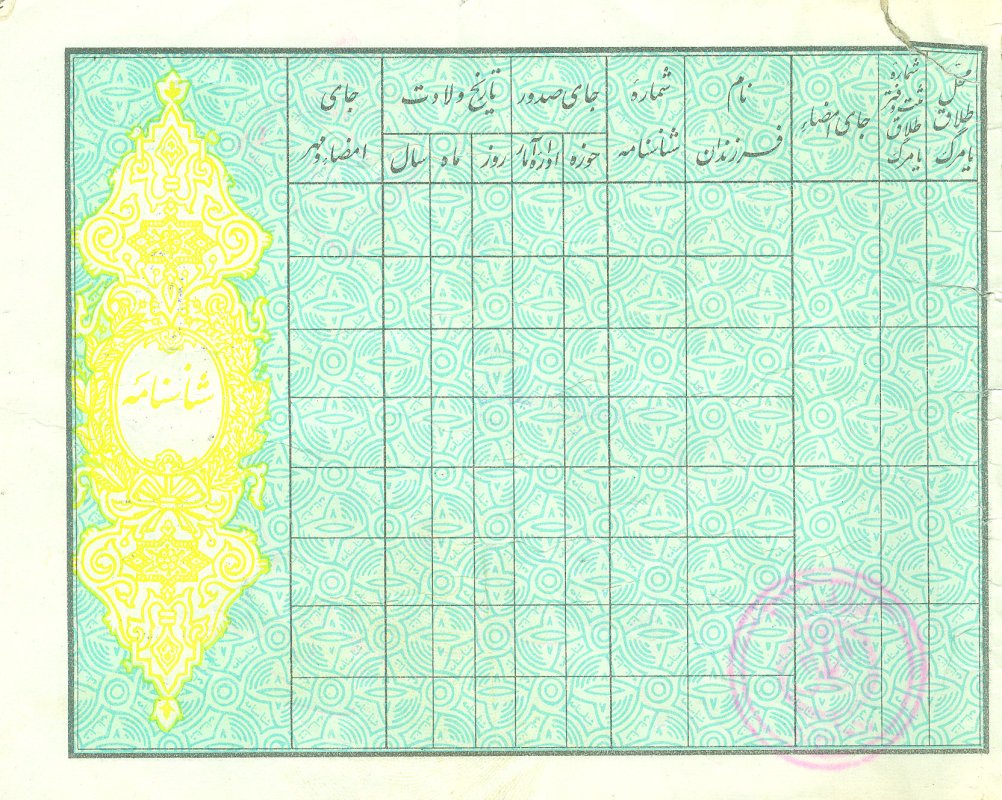 محل طلاق یا مرگ
شماره ثبت و دفتر طلاق یا مرگ
جای امضاء
نام فرزندان
شمارهٔ شناسنامه
جای صدور
حوزه
اداره آمار
تاریخ ولادت
روز
ماه
سال
جای امضاء و مهر
شناسنامه